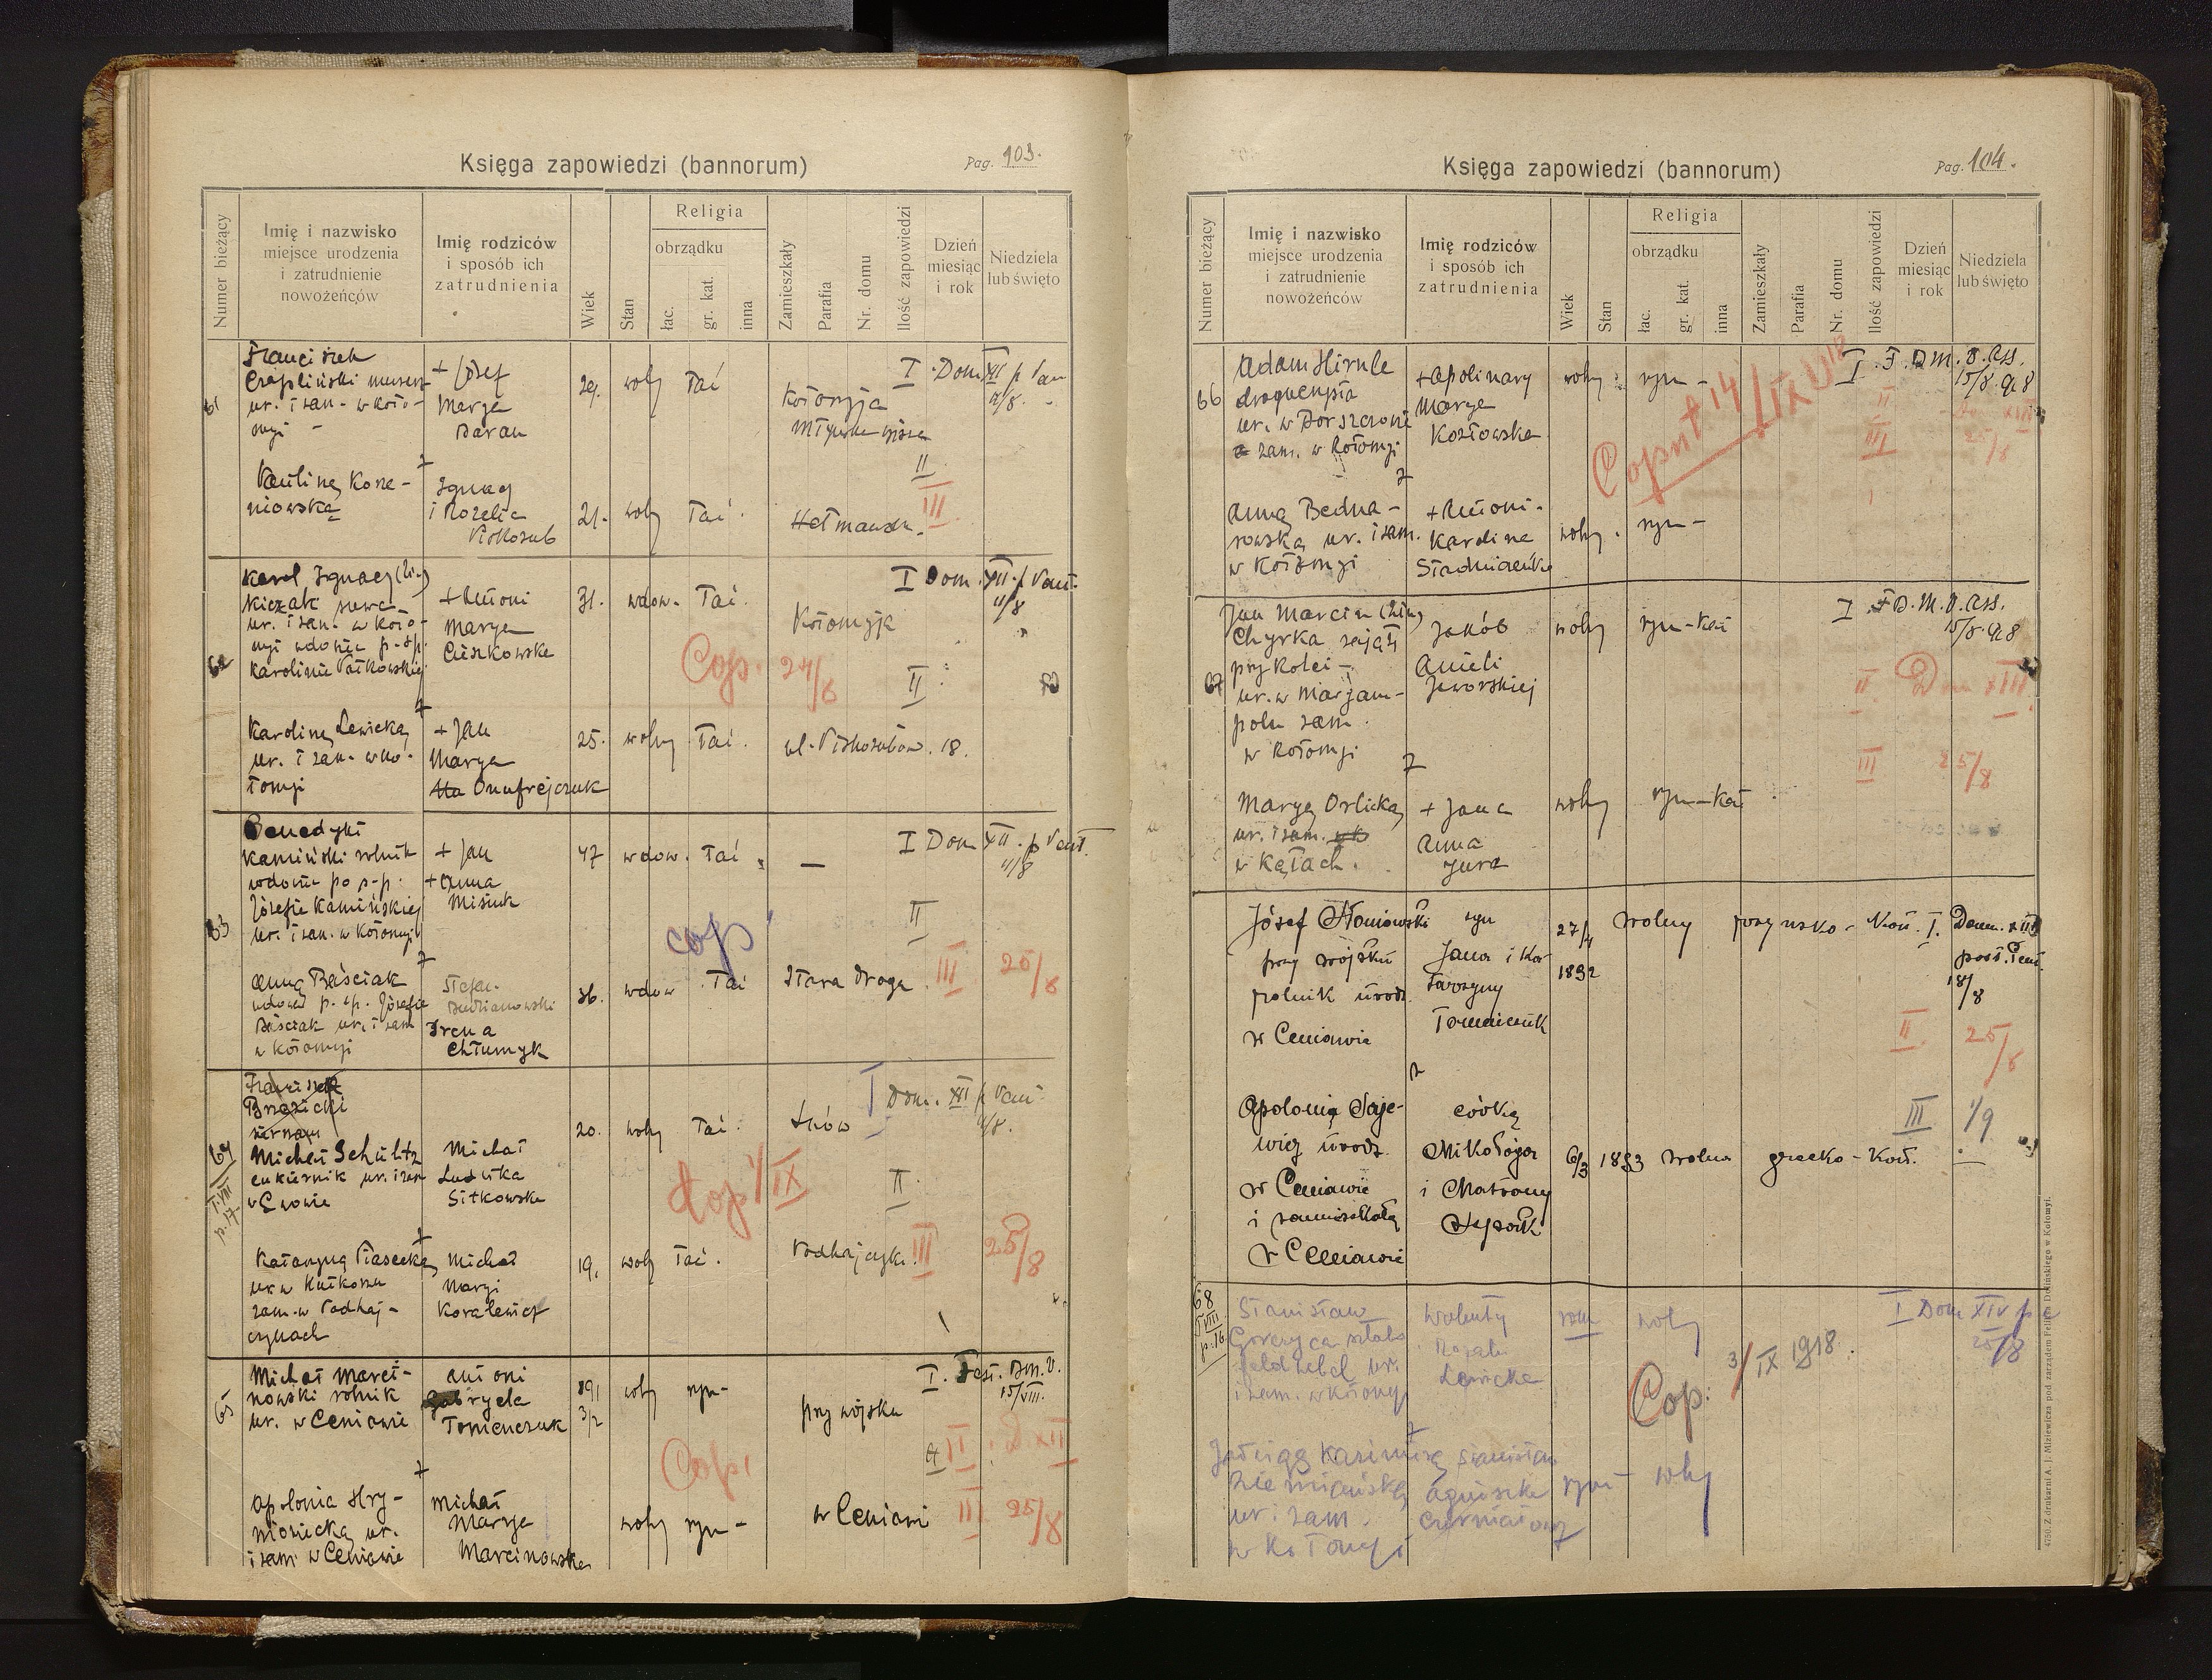 Księga zapowiedzi (bannorum)
Pag. 103.
Numer bieżący
Imię i nazwisko
miejsce urodzenia
i zatrudnienie
nowożeńców
Imię rodziców
i sposób ich
zatrudnienia
Wiek
Stan
Religia
obrządku
łac.
gr. kat.
inna
Zamieszkały
Parafia
Nr. domu
Ilość zapowiedzi
Dzień
miesiąc
i rok
Niedziela
lub święto
61
Franciszek
Czapliński
ur. i zam. w Koło-
myi
+ Józef
Marya
Baran
29.
wolny
łać
Kołomyja
I Dom XII p
11/8.
II
III
Paulinę Korze-
niowską
Ignacy
i Rozelia
Piskozub
21.
wolny
łać.
Hetmańska.
62
Karol Ignacy
ur. i zam. w Koło-
myi wdowiec p. śp.
Karolinie
+ Antoni
Marya
Ciszkowska
31.
wdow.
łać.
Kołomyja
I Dom. XII p
11/8
Cop. 24/8
II
Karolinę Lewicką
ur. i zam. w Ko-
łomyi
+ Jan
Marya
Onufrejczuk
25.
wolny
łać.
ul. 18.
63
Benedykt
Kamiński rolnik
wdowiec po ś.p.
Józefie Kamińskiej
ur. i zam. w Kołomyi
+ Jan
+ Anna
47
wdow.
łać
—
I Dom XII p
11/8
cop
II
Annę Baściak
wdowa p. śp. Józefie
Baściak ur. i zam
w Kołomyi
Stefan
Irena
Chłumyk
36.
wdow
łać
Stara droga
III
25/8
64
T. VIII
p. 17
Michał Schültz
cukiernik ur. i zam
w Lwowie
Michał
Ludwika
Sitkowska
20.
wolny
łać.
Lwów
I Dom. XII p
11/8.
Cop 1/IX
II
Katarzynę Piasecką
ur. w
zam. w Podhaj-
czykach
Michał
Maryi
Kowalewicz
19.
wolny
łać.
III
25/8
65
Michał Marci-
nowski rolnik
ur. w Ceniawie
Antoni
Gabryela
Tomenczuk
891
3/2
wolny
rzym-
przy wojsku
I. Fest. B.M.V.
15/VIII.
Cop
II
D. XII
Apolonia Hry-
niewicką ur.
i zam w Ceniawie
Michał
Marya
Marcinowska
wolny
rzym-
w Ceniawi
III
25/8
Księga zapowiedzi (bannorum)
Pag. 104.
Numer bieżący
Imię i nazwisko
miejsce urodzenia
i zatrudnienie
nowożeńców
Imię rodziców
i sposób ich
zatrudnienia
Wiek
Stan
Religia
obrządku
łac.
gr. kat.
inna
Zamieszkały
Parafia
Nr. domu
Ilość zapowiedzi
Dzień
miesiąc
i rok
Niedziela
lub święto
66
Adam Hirnle
ur. w Borszczowie
zam. w Kołomyi
+ Apolinary
Marya
Kozłowska
wolny
rzym-
I F. B.M.V. Ass.
15/8. 918
II
XIII
III
25/8
14/IX 1918
Anną Bedna-
rowską ur. i zam.
w Kołomyi
+ Antoni.
Karolina
wolny.
rzym-
67
Jan Marcin
Chyrka zajęty
przy kolei
ur. w Marjam-
polu zam.
w Kołomyi
Jakób
Anieli
Jaworskiej
wolny
rzym-kat
I F B.M.V. Ass.
15/8. 918
II
Dom XIII
III
25/8
Maryę Orlicką
ur. i zam.
w Kątach.
+ Jana
Anna
Jura
wolny
rzym-kat
Józef
przy wojsku
rolnik urodz.
w Ceniawie
syn
Jana i Ka-
tarzyny
Tomniczuk
27/4
1892
Wolny
rzymsko-Kat.
I.
Dom. XIII
post. Pent.
18/8
II
25/8
Apolonię Saje-
wicz urodz.
w Ceniawie
i zamieszkałą
w Ceniawie
córką
Mikołaja
i Matrony
6/3 1893
Wolna
grecko-Kat.
III
1/9
68
T VIII
p. 16
Stanisław
Gorczyca
feldfebel ur.
i zam. w Kołomyi
Lewicka
rzym
wolny
I Dom XIV p
25/8
Cop: 3/IX 1918.
Jadwigę Kazimirę
Ziemiańską
ur. i zam.
w Kołomyi
Stanisław
Agnieszka
rzym-
wolny
4750. Z drukarni A. J. Miziewicza pod zarządem Feliksa Dolińskiego w Kołomyi.